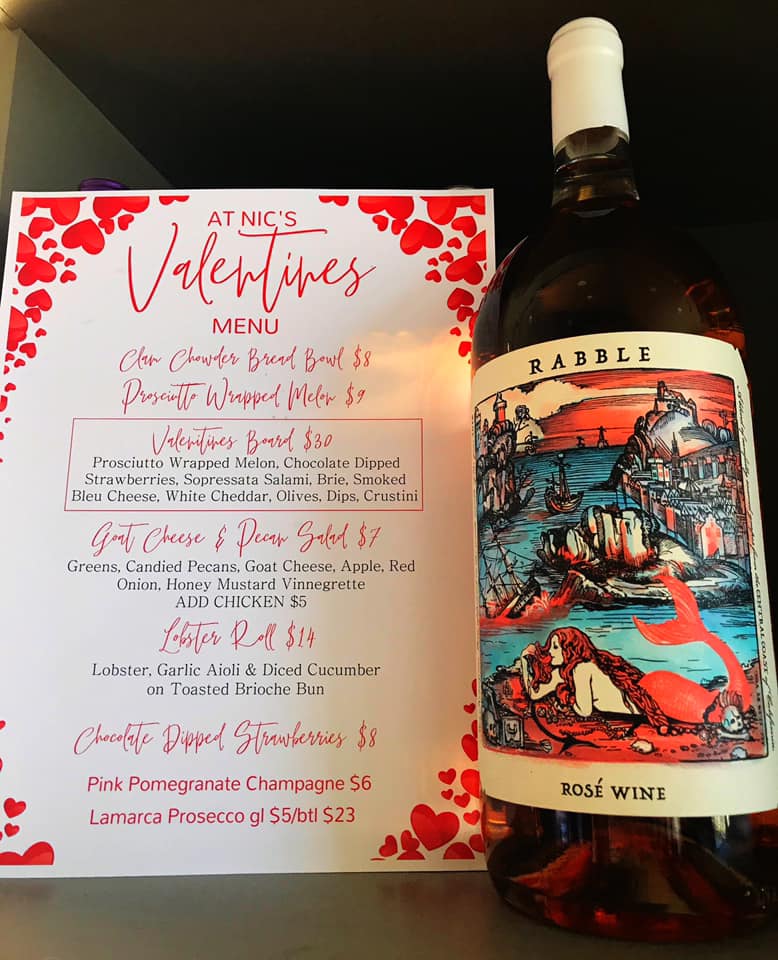 AT NIC'S
Valentines
MENU
Clam Chowder Bread Bowl $8
Prosciutto Wrapped Melon $9
Valentines Board $30
Prosciutto Wrapped Melon, Chocolate Dipped
Strawberries, Sopressata Salami, Brie, Smoked
Bleu Cheese, White Cheddar, Olives, Dips, Crustini
Goat Cheese & Pecan Salad $7
Greens, Candied Pecans, Goat Cheese, Apple, Red
Onion, Honey Mustard Vinnegrette
ADD CHICKEN $5
Lobster Roll $14
Lobster, Garlic Aioli & Diced Cucumber
on Toasted Brioche Bun
Chocolate Dipped Strawberries $8
Pink Pomegranate Champagne $6
Lamarca Prosecco gl $5/btl $23
RABBLE
the CENTRAL COAST of
ROSÉ WINE